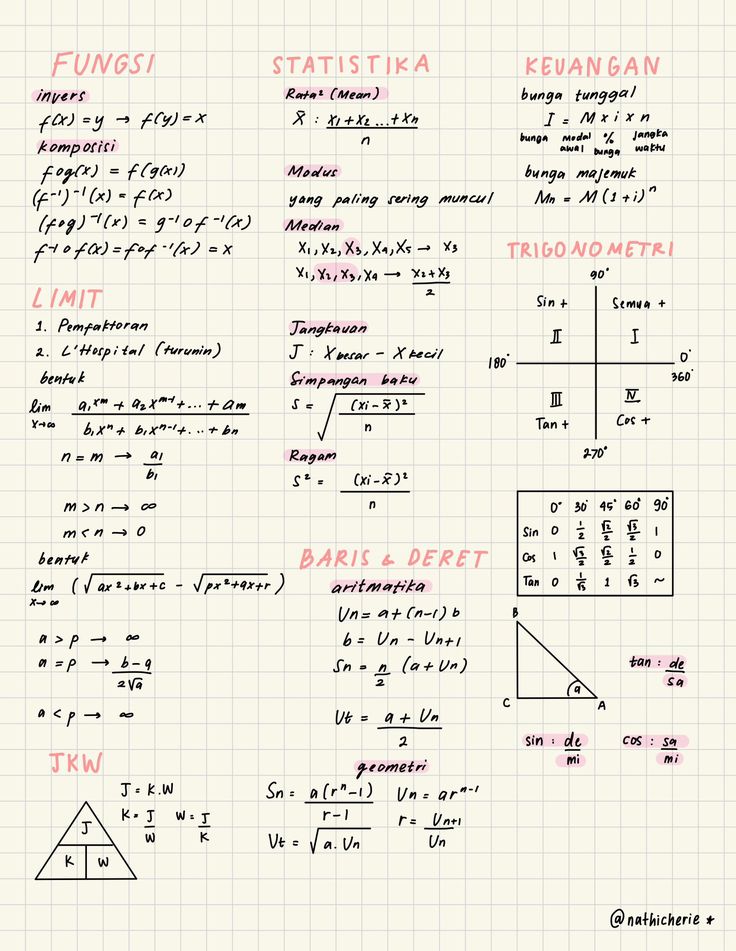 FUNGSI
invers
f(x) = y → f(y) = x
komposisi
fog(x) = f(g(x))
(f⁻¹)⁻¹(x) = f(x)
(fog)⁻¹(x) = g⁻¹of⁻¹(x)
f⁻¹of(x) = fof⁻¹(x) = x
LIMIT
1. Pemfaktoran
2. L'Hospital (turunin)
bentuk
lim x→∞ (a₁xᵐ + a₂xᵐ⁻¹ + ... + am) / (b₁xⁿ + b₁xⁿ⁻¹ + ... + bn)
n = m → a₁/b₁
m > n → ∞
m < n → 0
bentuk
lim x→∞ (√ax²+bx+c - √px²+qx+r)
a > p → ∞
a = p → b-q / 2√a
a < p → ∞
JKW
J = K.W
K = J/W W = J/K
J
K W
STATISTIKA
Rata² (Mean)
X̄ : x₁ + x₂ ... + xn / n
Modus
yang paling sering muncul
Median
X₁, X₂, X₃, X₄, X₅ → X₃
X₁, X₂, X₃, X₄ → X₂ + X₃ / 2
Jangkauan
J : Xbesar - Xkecil
Simpangan baku
S = √(xi - x̄)² / n
Ragam
S² = (xi - x̄)² / n
BARIS & DERET
aritmatika
Un = a + (n-1) b
b = Un - Un+1
Sn = n/2 (a + Un)
Ut = a + Un / 2
geometri
Sn = a(rⁿ-1) / r-1 Un = arⁿ⁻¹
r = Un+1 / Un
Ut = √a.Un
KEUANGAN
bunga tunggal
I = M x i x n
bunga modal awal % bunga jangka waktu
bunga majemuk
Mn = M (1+i)ⁿ
TRIGONOMETRI
90°
Sin + Semua +
II I
180° 0°
360°
III IV
Tan + Cos +
270°
0° 30° 45° 60° 90°
Sin 0 1/2 √2/2 √3/2 1
Cos 1 √3/2 √2/2 1/2 0
Tan 0 1/√3 1 √3 ~
B
C a A
tan : de/sa
sin : de/mi cos : sa/mi
@nathicherie *